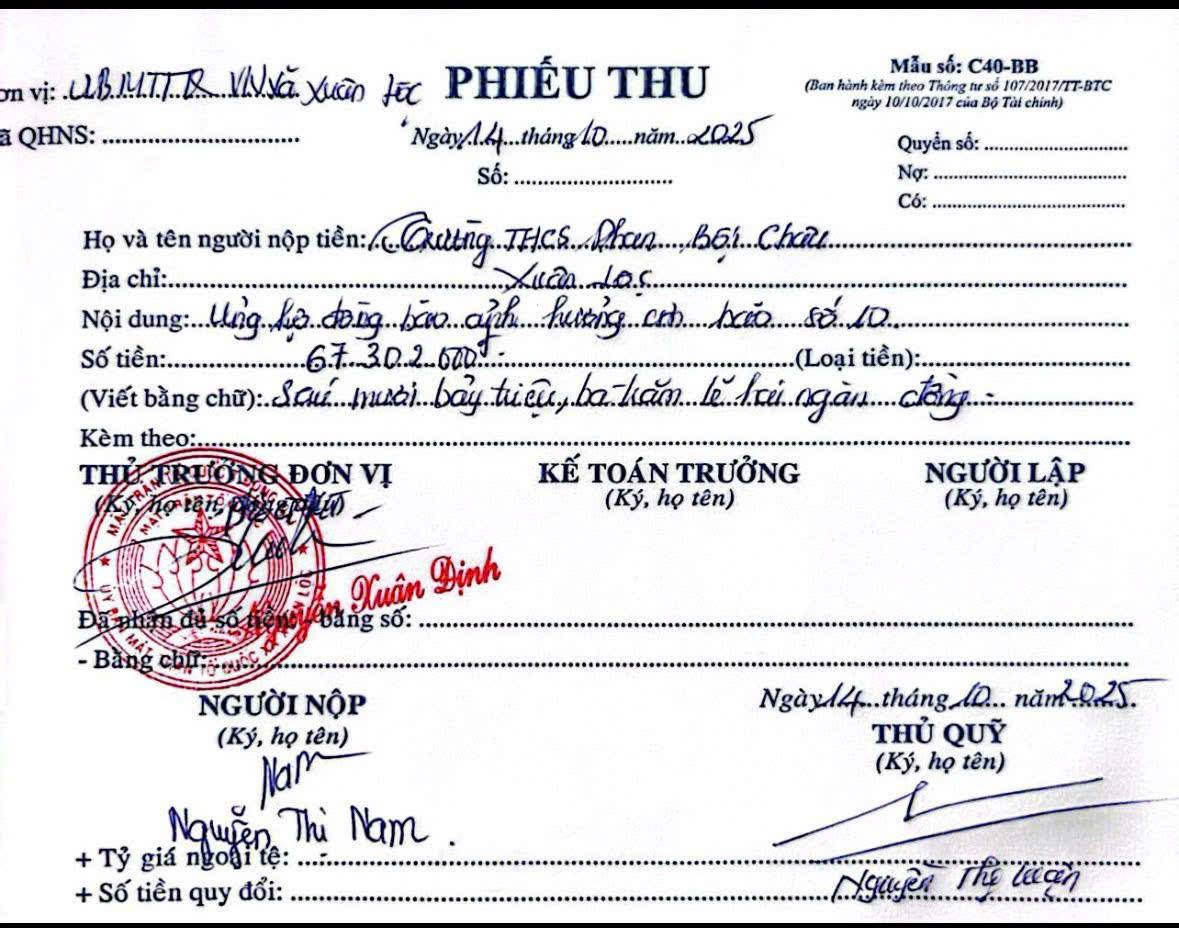 ơn vị: UBMTTQ VN xã Xuân Lộc
PHIẾU THU
Mẫu số: C40-BB
(Ban hành kèm theo Thông tư số 107/2017/TT-BTC
ngày 10/10/2017 của Bộ Tài chính)
ã QHNS: ....................
Ngày 14 tháng 10 năm 2025
Số: ....................
Quyển số: ....................
Nợ: ....................
Có: ....................
Họ và tên người nộp tiền: Trường THCS Phan Bội Châu
Địa chỉ: Xuân Lộc
Nội dung: Ủng hộ đồng bào ảnh hưởng cơn bão số 10.
Số tiền: 67.302.000đ (Loại tiền):
(Viết bằng chữ): Sáu mươi bảy triệu, ba trăm lẻ hai ngàn đồng
Kèm theo:
THỦ TRƯỞNG ĐƠN VỊ
(Ký, họ tên, đóng dấu)
KẾ TOÁN TRƯỞNG
(Ký, họ tên)
NGƯỜI LẬP
(Ký, họ tên)
Nguyễn Xuân Định
Đã nhận đủ số tiền: - bằng số:
- Bằng chữ:
NGƯỜI NỘP
(Ký, họ tên)
Nam
Nguyễn Thị Nam
Ngày 14 tháng 10 năm 2025.
THỦ QUỸ
(Ký, họ tên)
+ Tỷ giá ngoại tệ:
+ Số tiền quy đổi:
Nguyễn Thị